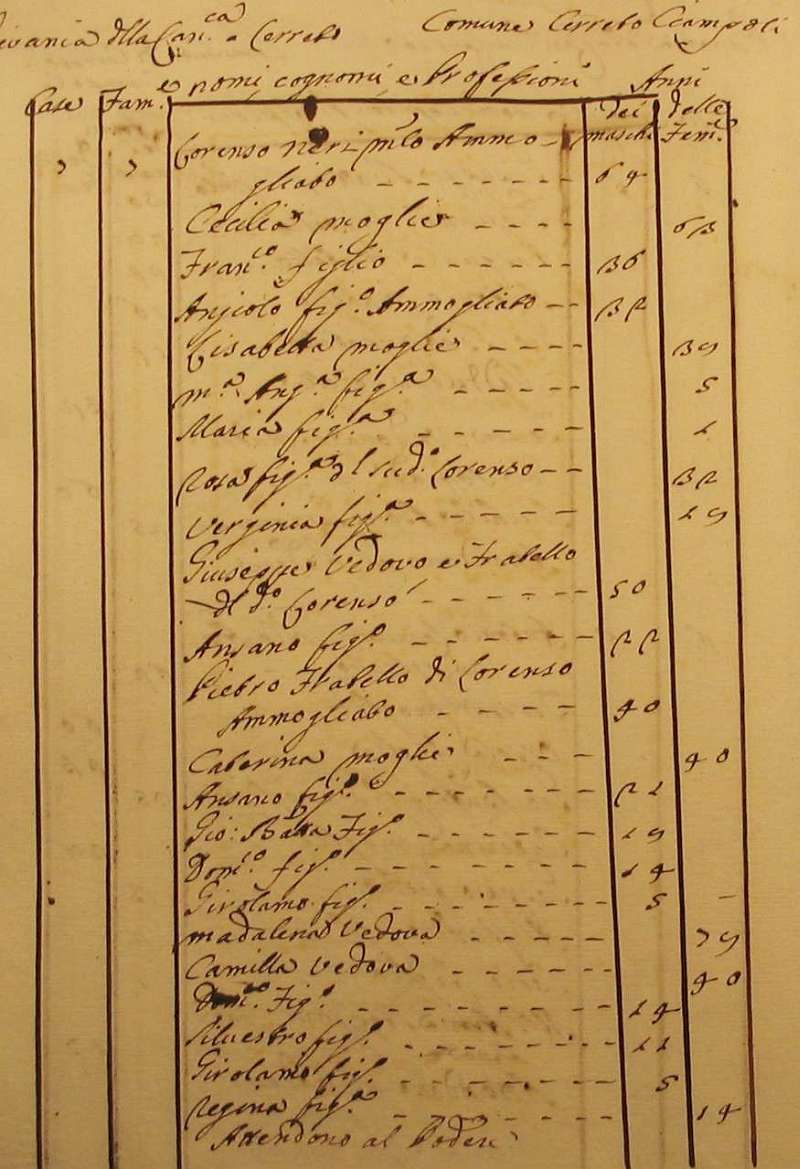 Comune Cerreto Ciampoli
Case Fam.e nomi, cognomi, e Professioni Anni
dei maschi delle Fem.e
7 7 Lorenso neri m.to Ammo-
gliato - - - - - - 64
Cecilia moglie - - - - 63
Fran.co figlio - - - - - - 36
Angiolo fig.o Ammogliato - - 32
Lisabetta moglie - - - - 39
M.a Ang.a fig.a - - - - 5
Maria fig.a - - - - - 1
Rosa fig.a dl sud.o Lorenso - - 32
Verginia fig.a - - - - - 19
Giuseppe Vedovo e Fratello
dl d.o Lorenso - - - - - - 50
Ansano fig.o - - - - - - 22
Pietro Fratello di Lorenso
Ammogliato - - - - 40
Caterina moglie - - - 40
Ansano fig.o - - - - - - 21
Gio: Batta Fig.o - - - - - 19
Dom.co fig.o - - - - - - - 14
Girolamo fig.o - - - - - - 5 -
Madalena Vedova - - - - - 79
Camilla Vedova - - - - - 40
Dom.co Fig.o - - - - - - - 14
Silvestro fig.o - - - - - - - 11
Girolamo fig.o - - - - - - 5
Regina fig.a - - - - - 14
Attendono al Podere